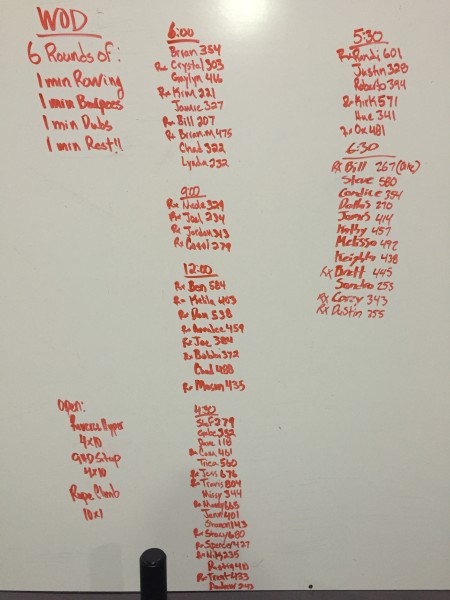 WOD
6 Rounds of:
1 min Rowing
1 min Burpees
1 min Dubs
1 min Rest!!
6:00
Brian 354
Rx Crystal 303
Gaylyn 416
Rx Kim 221
Jamie 327
Rx Bill 207
Rx Brian.M 475
Chad 322
Lynda 232
9:00
Rx Nicole 329
Rx Joel 234
Rx Jordan 313
Rx Carol 279
12:00
Rx Ben 584
Rx 403
Rx Dan 538
Rx Annalee 459
Rx Joe 384
Rx Bobbi 372
Chad 488
Rx Mason 435
4:30
Stef 279
Gabe 332
Dave 118
Rx Cara 461
Trica 560
Rx Jess 676
Rx Travis 804
Missy 344
Rx Mandy 665
Jenn 401
Shannon 143
Rx Stacy 680
Rx Spencer 427
Rx 235
Rusty 410
Rx Trent 433
5:30
Rx Randi 601
Justin 328
Roberto 394
Rx Kirk 571
Hue 341
Rx Ox 481
6:30
Rx Bill 267
Steve 580
Candice 354
Dallas 270
James 414
Kathy 457
Melissa 492
Keighla 438
Rx Brett 445
Sandra 253
Rx Corey 343
Rx Dustin 255
Open:
Reverse Hyper
4x10
GHD Situp
4x10
Rope Climb
10x1